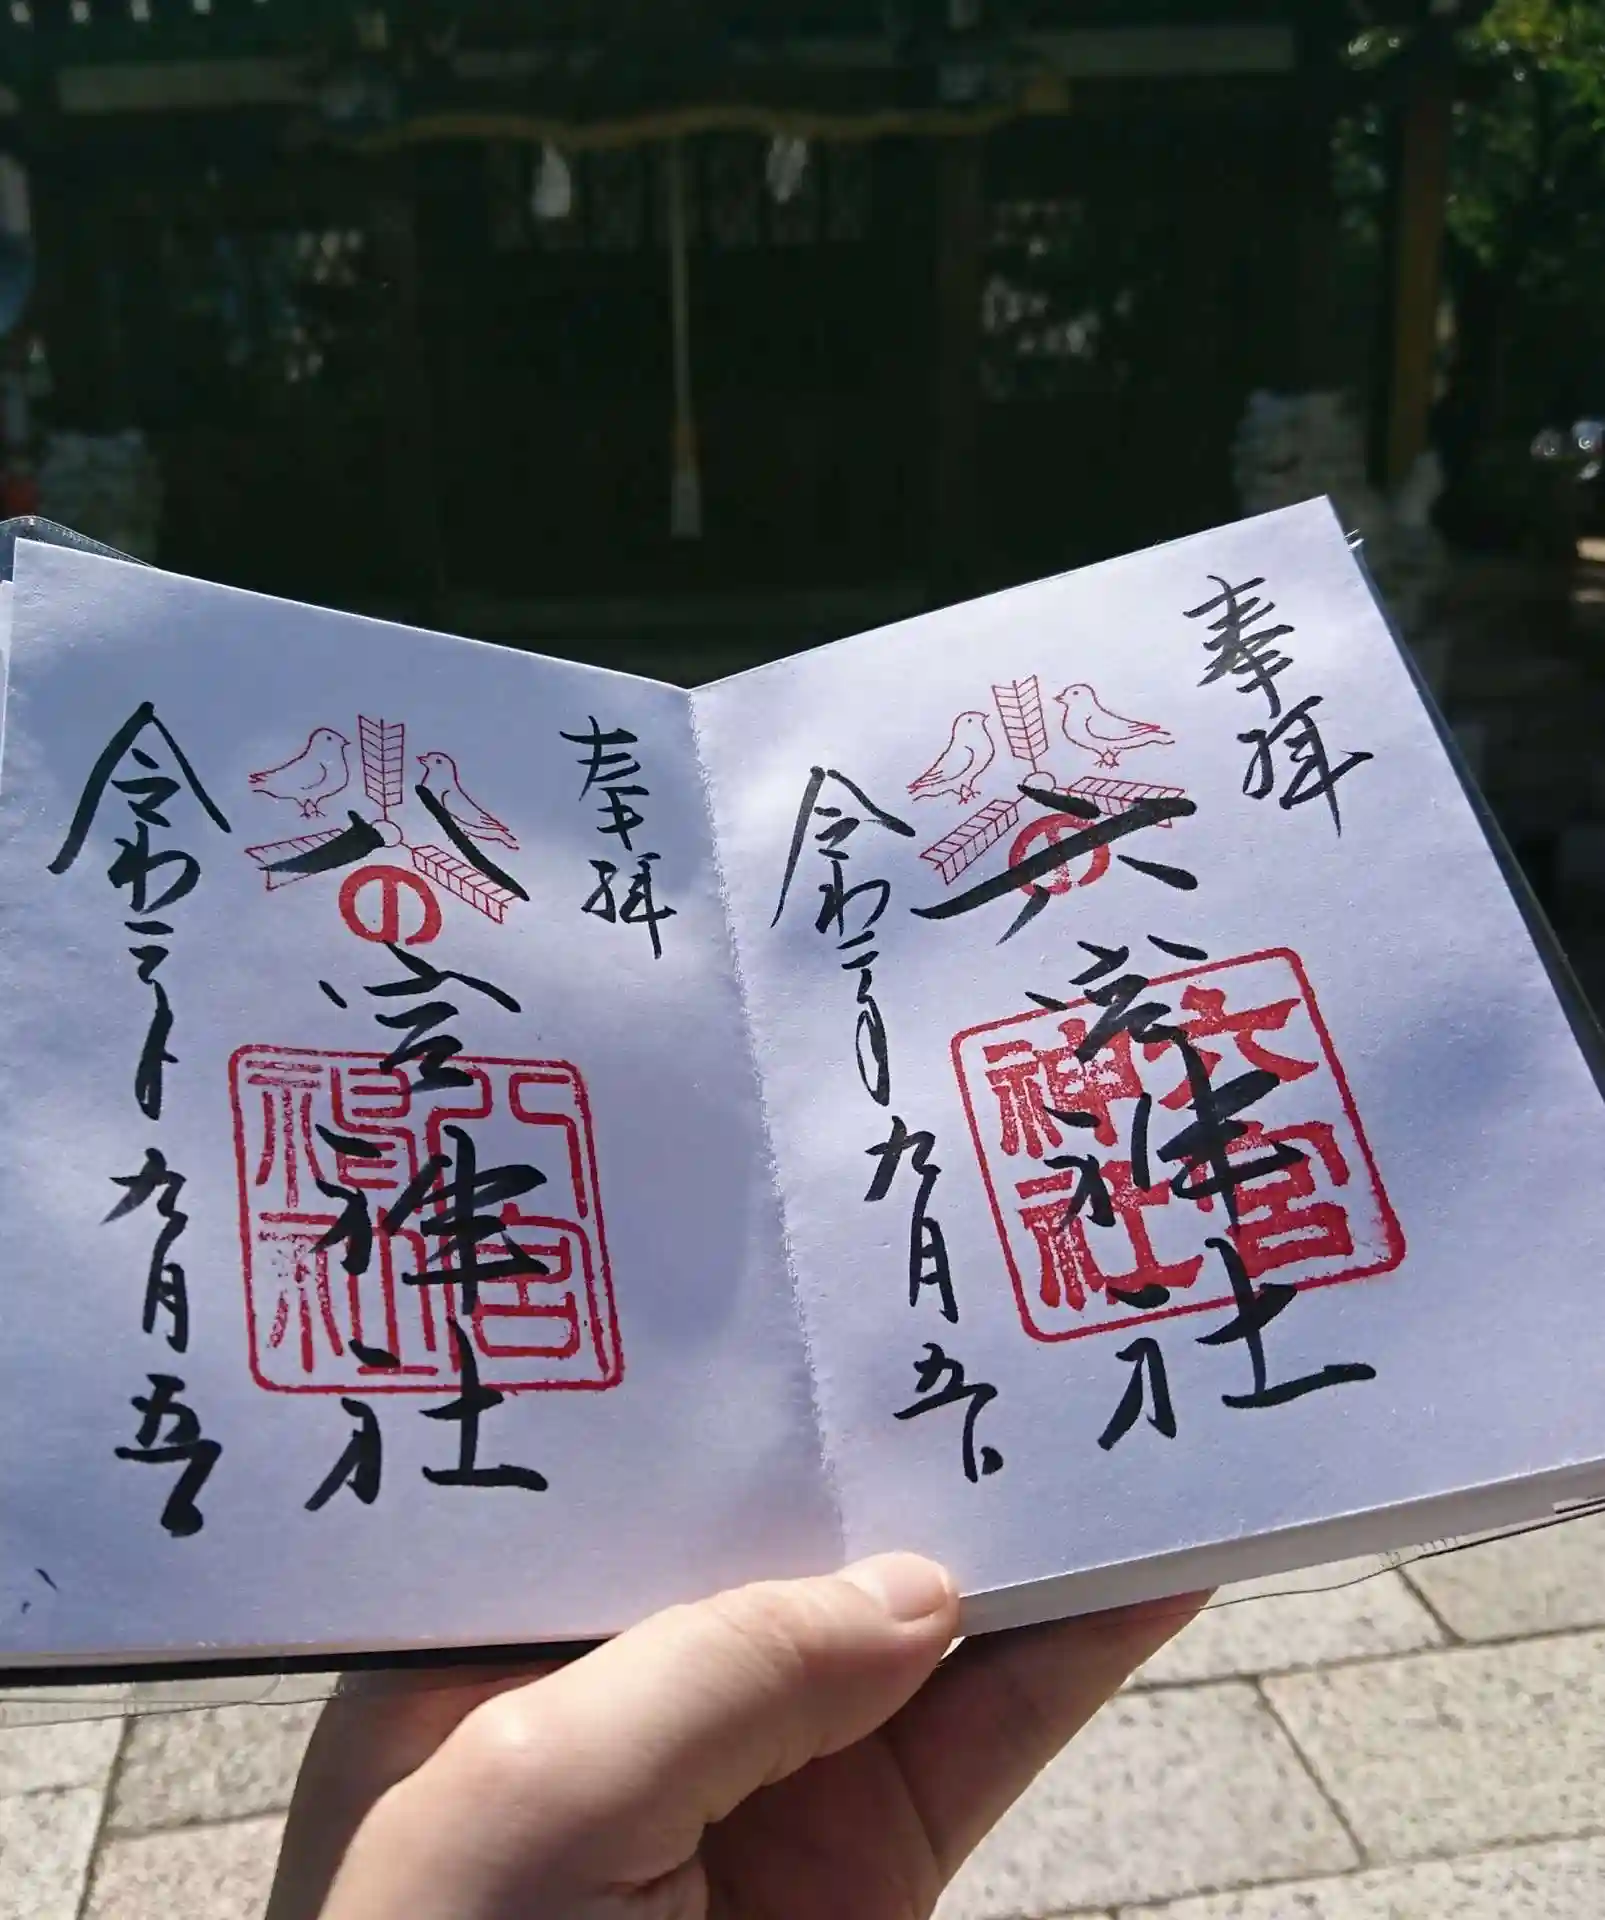 奉拝
六宮神社
六宮神社
令和二年九月五日
奉拝
八
の
宮神社
八宮神社
令和二年九月五日